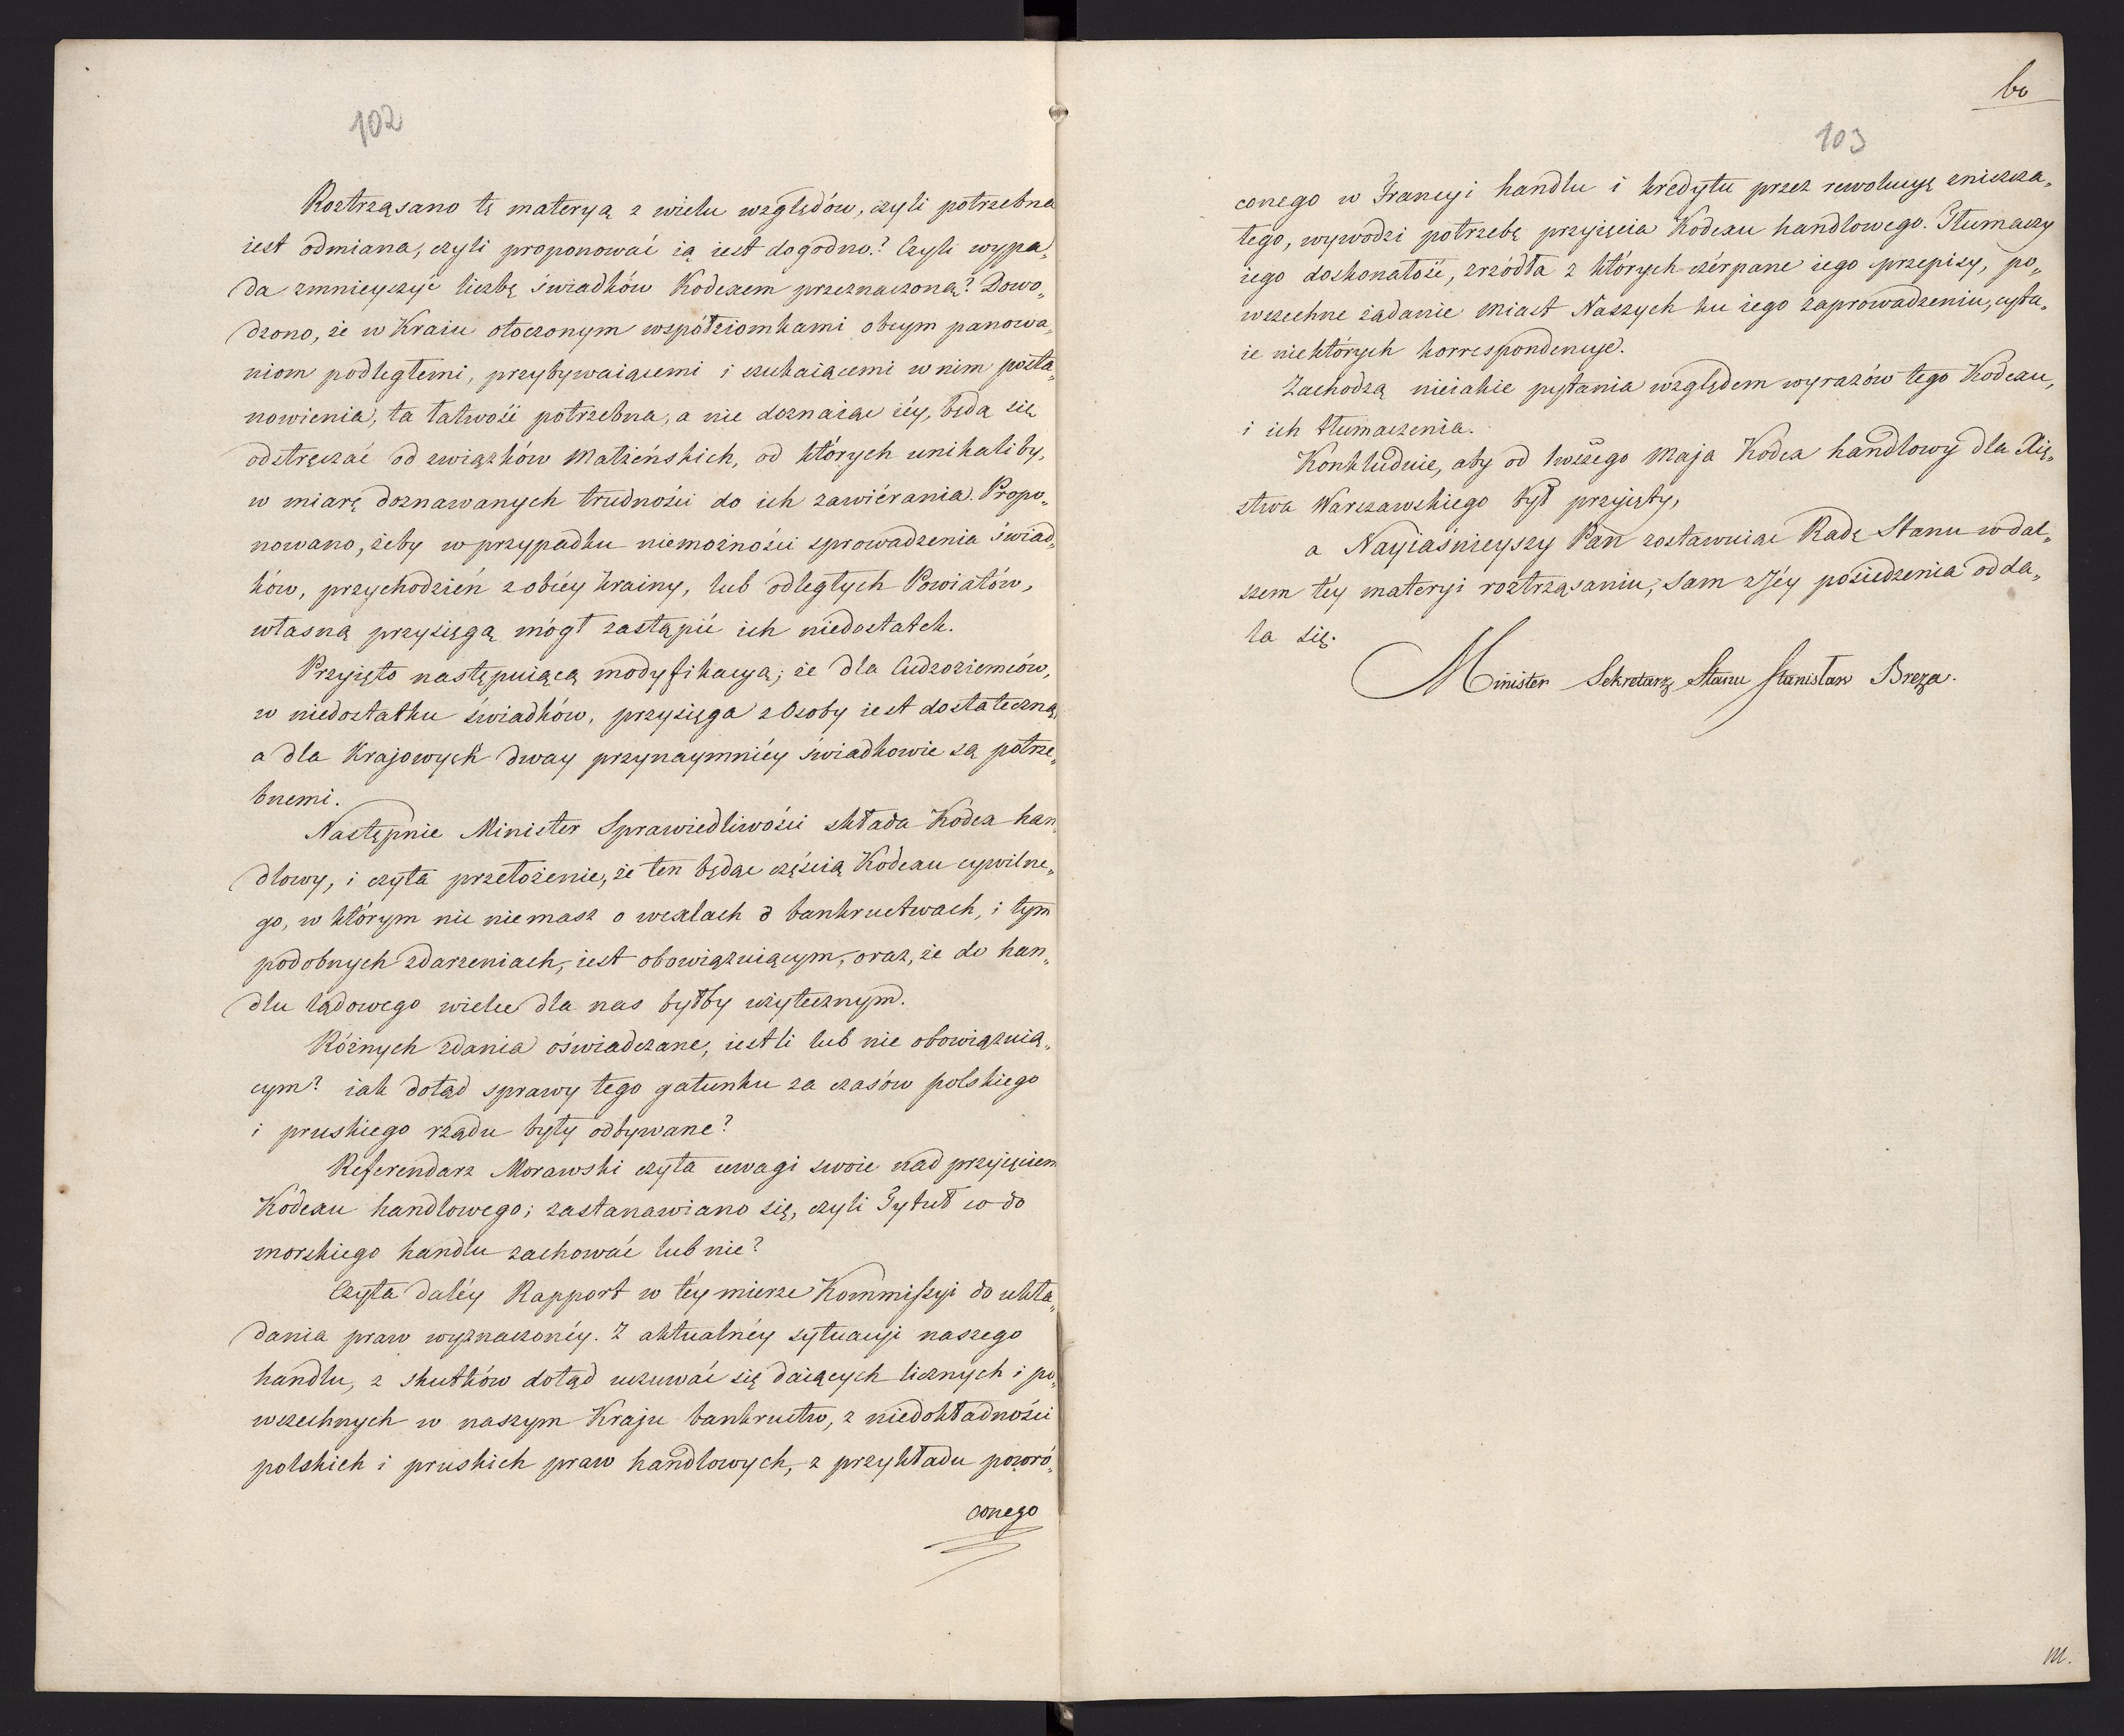 102
Roztrząsano tę materyą z wielu względów, czyli potrzebna
iest odmiana, czyli proponować ią iest dogodno? Czyli wypa„
da zmnieyszyć liczbę świadków Kodexem przeznaczoną? Dowo„
dzono, że w Kraiu otoczonym współziomkami obcym panowa„
niom podległemi, przybywaiącemi i szukaiącemi w nim posta„
nowienia, ta łatwość potrzebna, a nie doznaiąc iéy, będą się
odstręczać od związków Małżeńskich, od których unikaliby,
w miarę doznawanych trudności do ich zawiérania. Propo„
nowano, żeby w przypadku niemożności sprowadzenia świad„
ków, przychodzień z obcéy krainy, lub odległych Powiatów,
własną przysięgą mógł zastąpić ich niedostatek.
Przyięto następuiącą modyfikacyą; że dla Cudzoziemców,
w niedostatku świadków, przysięga z Osoby iest dostateczną,
a dla Krajowych dway przynaymniéy świadkowie są potrze„
bnemi.
Następnie Minister Sprawiedliwości składa Kodex han„
dlowy, i czyta przełożenie, że ten będąc częścią Kodexu cywilne„
go, w którym nic niemasz o wexlach o bankructwach, i tym
podobnych zdarzeniach, iest obowiązuiącym, oraz, że do han„
dlu lądowego wielce dla nas byłby użytecznym.
Różnych zdania oświadczane, iestli lub nie obowiązuią„
cym? iak dotąd sprawy tego gatunku za czasów polskiego
i pruskiego rządu były odbywane?
Referendarz Morawski czyta uwagi swoie nad przyięciem
Kodexu handlowego; zastanawiano się, czyli Tytuł co do
morskiego handlu zachować lub nie?
Czyta daléy Rapport w téy mierze Kommissyi do ukła„
dania praw wyznaczonéy. Z aktualnéy sytuacyi naszego
handlu, z skutków dotąd uczuwać się daiących licznych i po„
wszechnych w naszym Kraju bankructw, z niedokładności
polskich i pruskich praw handlowych, z przykładu powró„
conego
103
conego w Francyi handlu i kredytu przez rewolucyę zniszczo„
tego, wywodzi potrzebę przyięcia Kodexu handlowego. Tłumaczy
iego doskonałość, zrzódła z których czérpane iego przepisy, po„
wszechne żądanie Miast Naszych ku iego zaprowadzeniu, cytu„
ie niektórych korrespondencye.
Zachodzą nieiakie pytania względem wyrazów tego Kodexu,
i ich tłumaczenia.
Konkluduie, aby od 1wszego Maja Kodex handlowy dla Xię„
stwa Warszawskiego był przyięty,
a Nayiaśnieyszy Pan zostawuiąc Radę Stanu w dal„
szem téy materyi roztrząsaniu, Sam z Jéy posiedzenia odda„
la się.
Minister Sekretarz Stanu Stanisław Breza.
M.